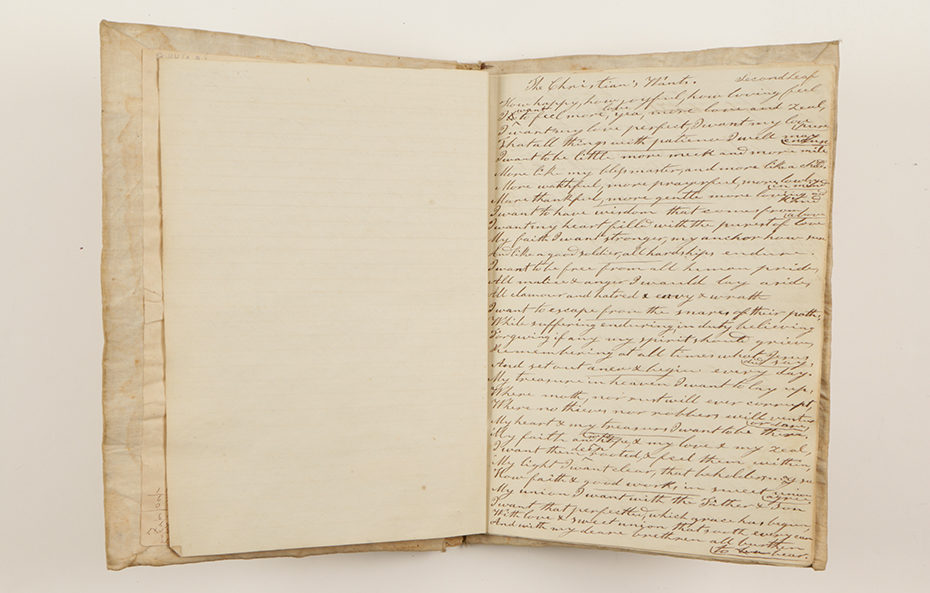 The Christian's Wants. Second Leaf
How happy, how joyful, how loving I feel
I want to feel more love, yea, more love and zeal,
I want my love perfect, I want my love pure
That all things with patience I well may endure
I want to be little more meek and more mile
More like my blessmaster, and more like a child.
More wathful, more prayerful, more lowly in mind
More thankful, more gentle more loving and kind
I want to have wisdom that comes from above
I want my heart filled with the purest of love
My faith I want stronger, my anchor how sure
And like a good soldier, all hardships endure.
I want to be free from all human pride,
All malice & anger I would lay aside,
All clamour and hatred & envy & wrath
I want to escape from the snares of their path,
While suffering enduring in duty believing
Forgiving if any my spirit should grieve,
Remembering at all times what Jesus did say,
And set out anew & begin every day.
My treasure in heaven I want to lay up,
Where moth, nor rust will ever corrupt,
Where no thieves nor robbers will venture or dare,
My heart & my treasure I want to be there,
My faith and hope, & my love & my zeal,
I want them deep rooted & feel them within,
My light I want clear, that beholders may see
How faith & good works in sweet union agree
My union I want with the Father & Son
I want that perfected, which grace has begun,
With love & sweet union that sooth every care
And with my deare brethren all burthen to bear.